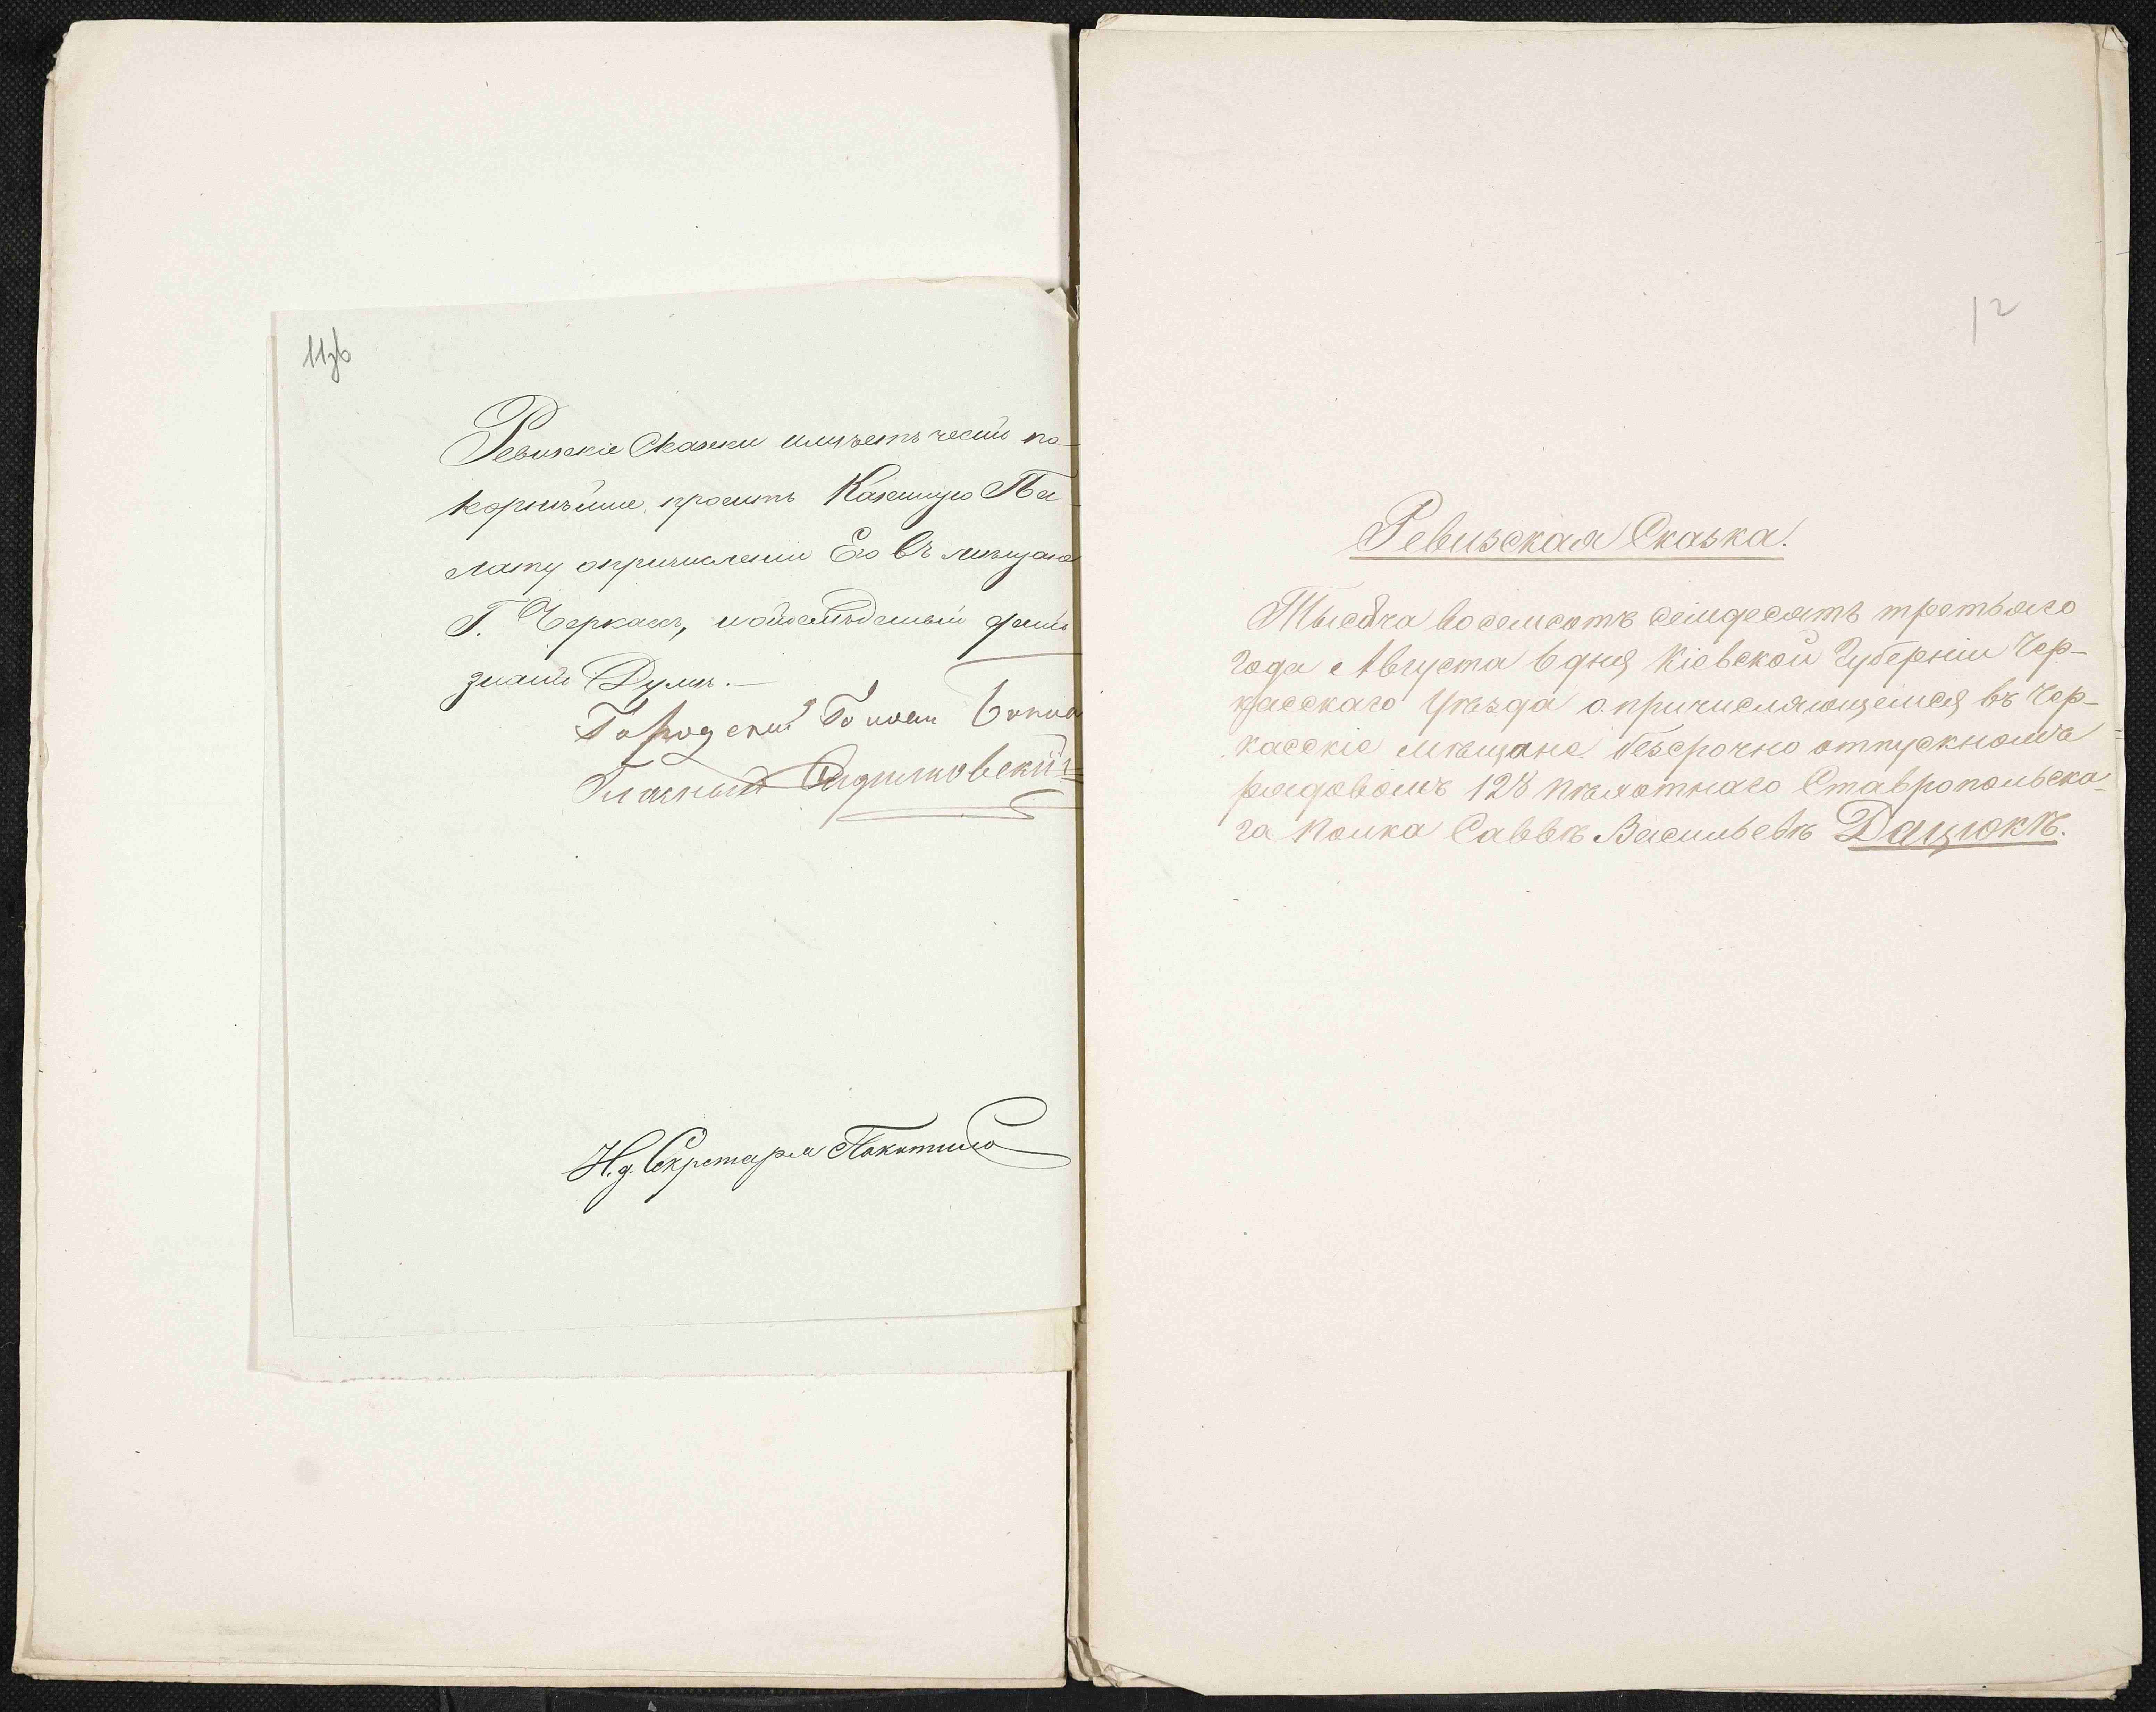 11зв
Ревизскія Сказки имѣетъ честь по-
корнѣйше проситъ Казенную Па-
лату опричисленіи Его въ мещане
Г. Черкасъ, и
знать Думѣ.
Городской Голова
Гласный
И. д. Секретаря Покотило
12
Ревизская Сказка.
Тысяча восемсотъ семдесятъ третьяго
года Августа 6 дня Кіевской Губерніи Чер-
касскаго Уѣзда о причисляющемся въ Чер-
касскіе мѣщане безсрочно отпускномъ
рядовомъ 128 пѣхотнаго Ставропольска-
га полка Саввѣ Васильевѣ Дацюкѣ.